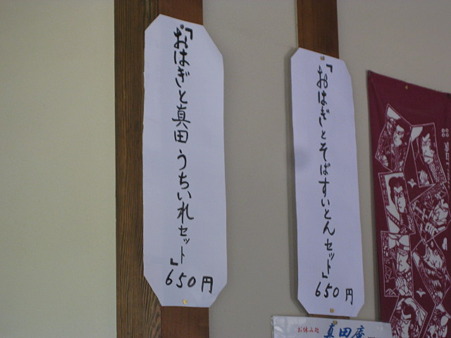 「おはぎとそばすいとんセット」
650円
「おはぎと真田うちいれセット」
650円
お休み処 真田庵